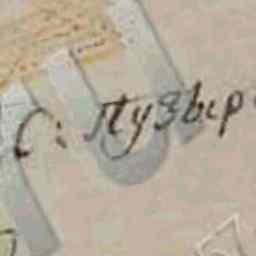 С: Пузыр